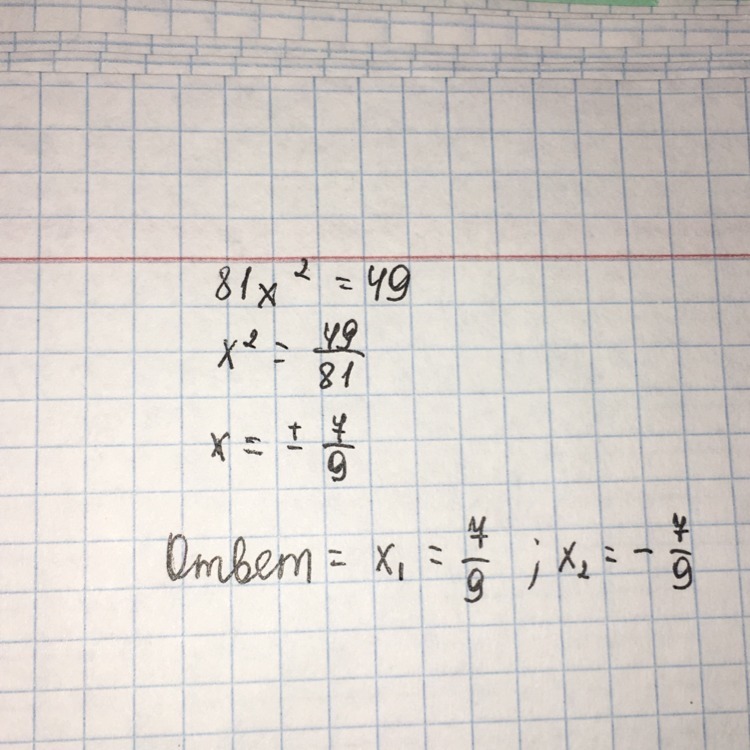 81x² = 49
x² = 49/81
x = ± 7/9
Ответ = x₁ = 7/9 ; x₂ = - 7/9